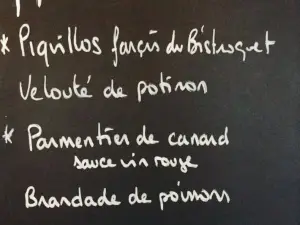 * Piquillos farçis du Bistroquet
Velouté de potiron
* Parmentier de canard
sauce vin rouge
Brandade de poisson